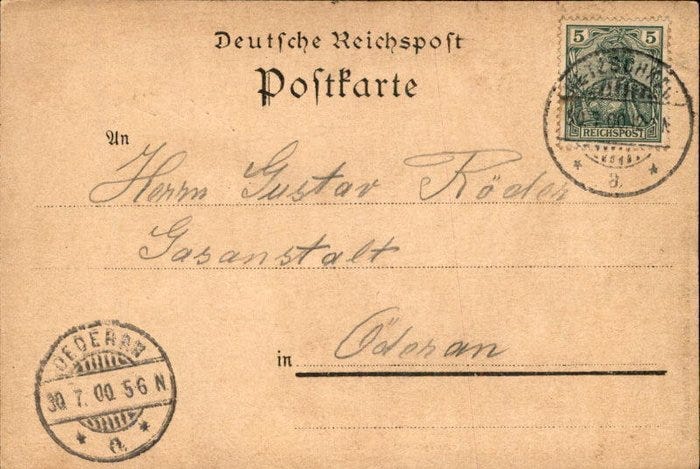 Deutsche Reichspost
Postkarte
5 5
REICHSPOST
30.7.00
a.
An
Herrn Gustav Röder
Gasanstalt
in Öderan
OEDERAN
30. 7. 00. 5-6 N
a.